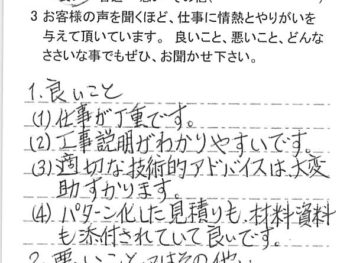 3 お客様の声を聞くほど、仕事に情熱とやりがいを
与えて頂いています。 良いこと、悪いこと、どんな
ささいな事でもぜひ、お聞かせ下さい。
1. 良いこと
(1) 仕事が丁重です。
(2) 工事説明がわかりやすいです。
(3) 適切な技術的アドバイスは、大変
助すかります。
(4) パターン化した見積りも、材料資料
も添付されていて良いです。
2. 悪いこと